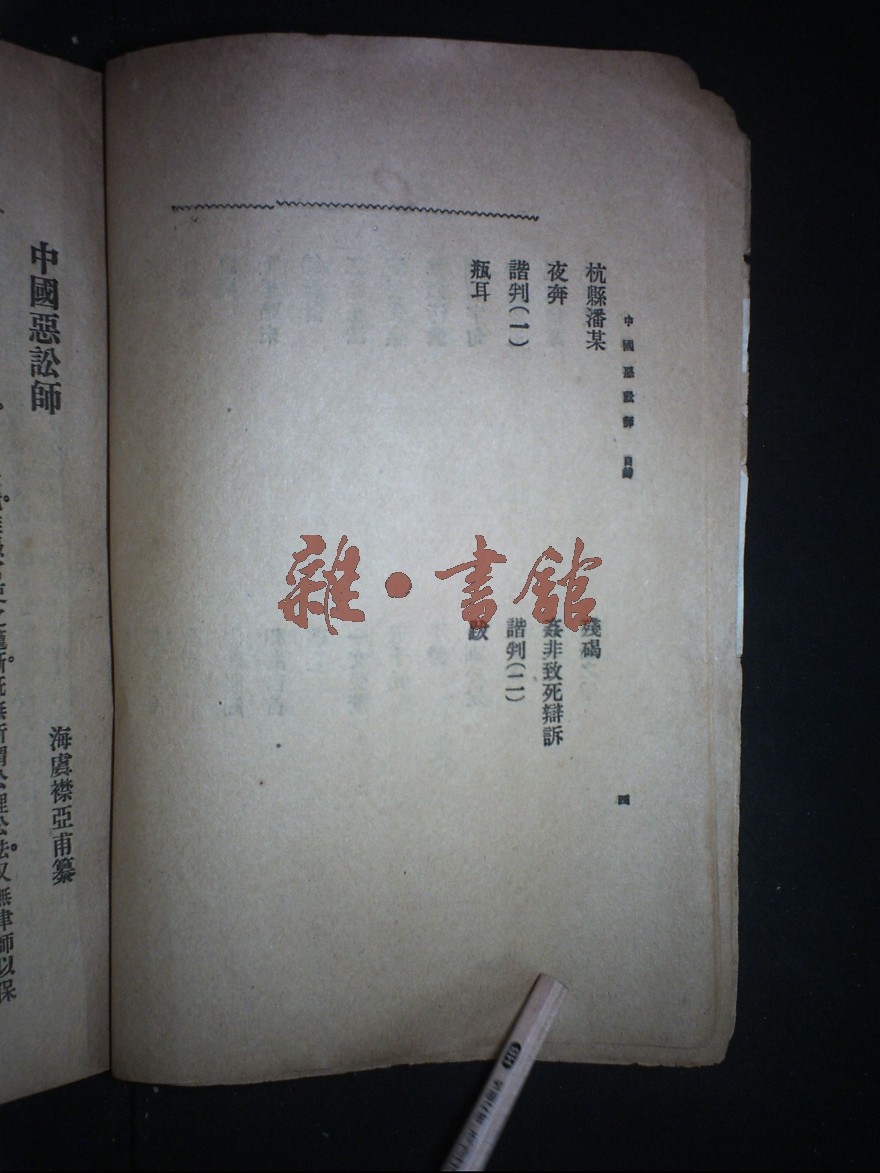 中國惡訟師 目錄
四
杭縣潘某
殘碣
夜奔
姦非致死辯訴
諧判(一)
諧判(二)
瓶耳
跋
雜·書館
中國惡訟師
海虞襟亞甫纂
無所謂公理公法。又無律師以保